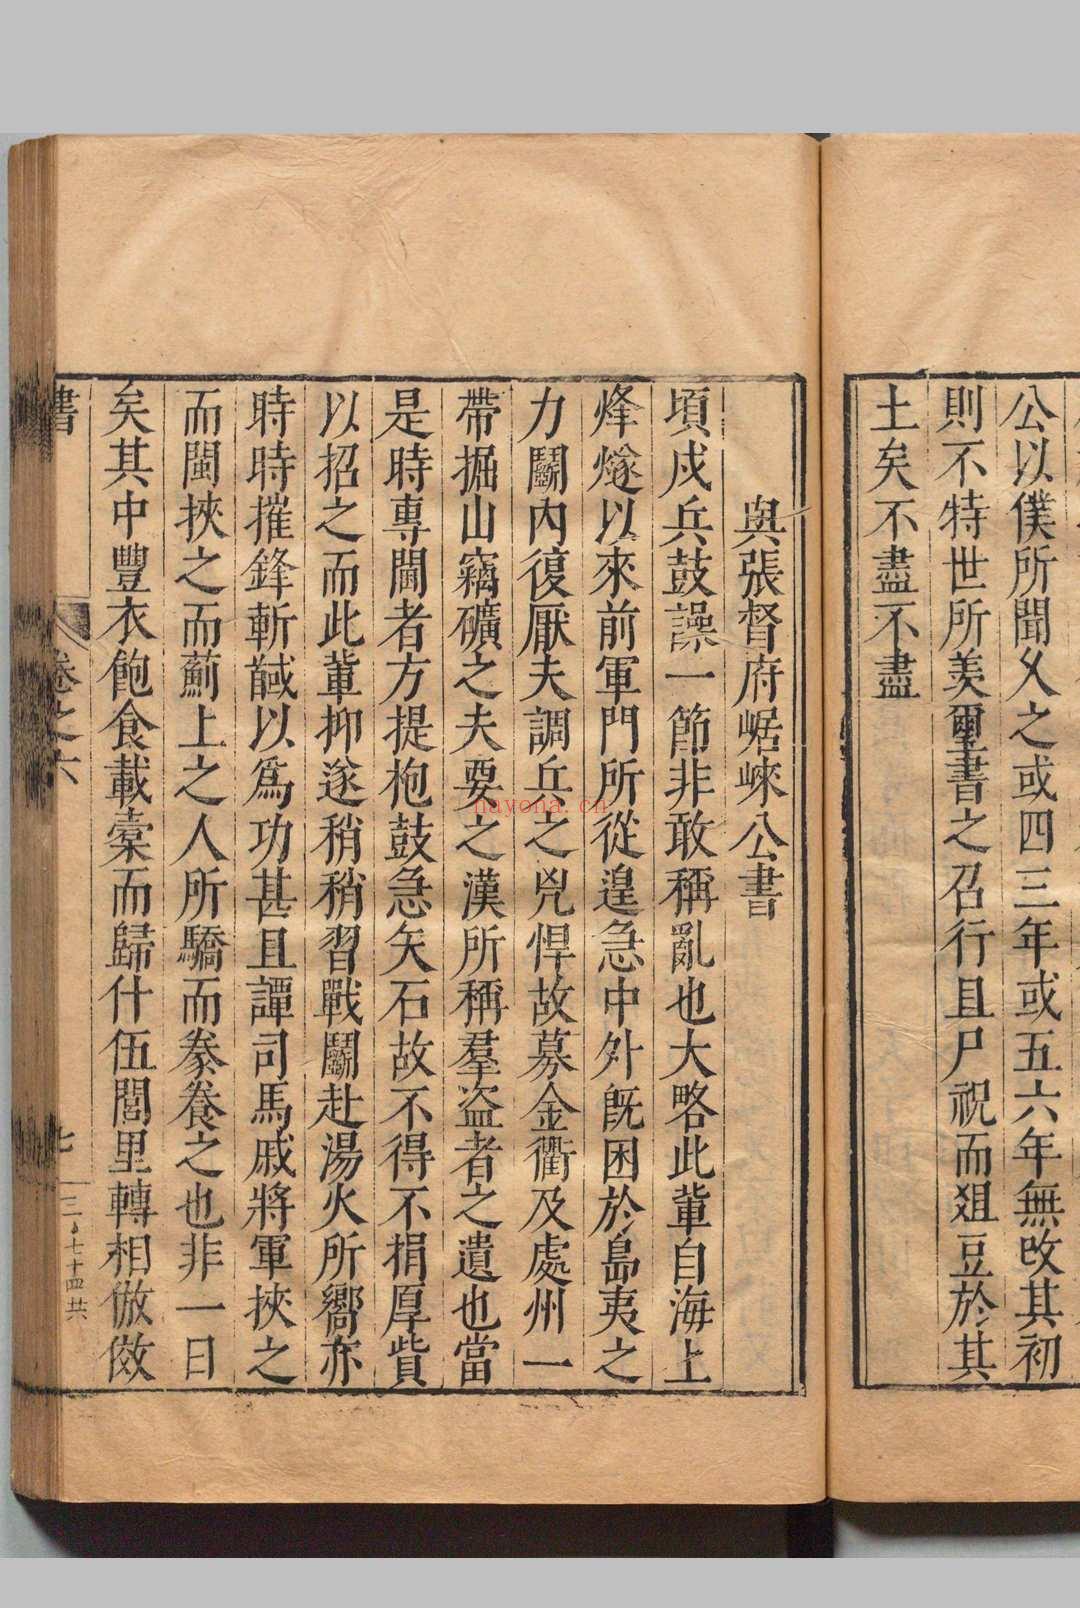 公以僕所聞父之或四三年或五六年無改其初
則不特世所羨璽書之召行且尸祝而俎豆於其
土矣不盡不盡
與張督府崌崍公書
頃戍兵鼓譟一節非敢稱亂也大略此輩自海上
烽燧以來前軍門所從遑急中外既困於島夷之
力鬬內復厭夫調兵之兇悍故募金衢及處州一
帶掘山竊礦之夫要之漢所稱羣盗者之遺也當
是時專閫者方提枹鼓急矢石故不得不捐厚貲
以招之而此輩抑遂稍稍習戰鬬赴湯火所嚮亦
時時摧鋒斬馘以爲功甚且譚司馬戚將軍挾之
而閩挾之而薊上之人所驕而豢養之也非一日
矣其中豐衣飽食載橐而歸什伍閭里轉相倣傚
書
卷之六
七
三
七十四
nayona.cn